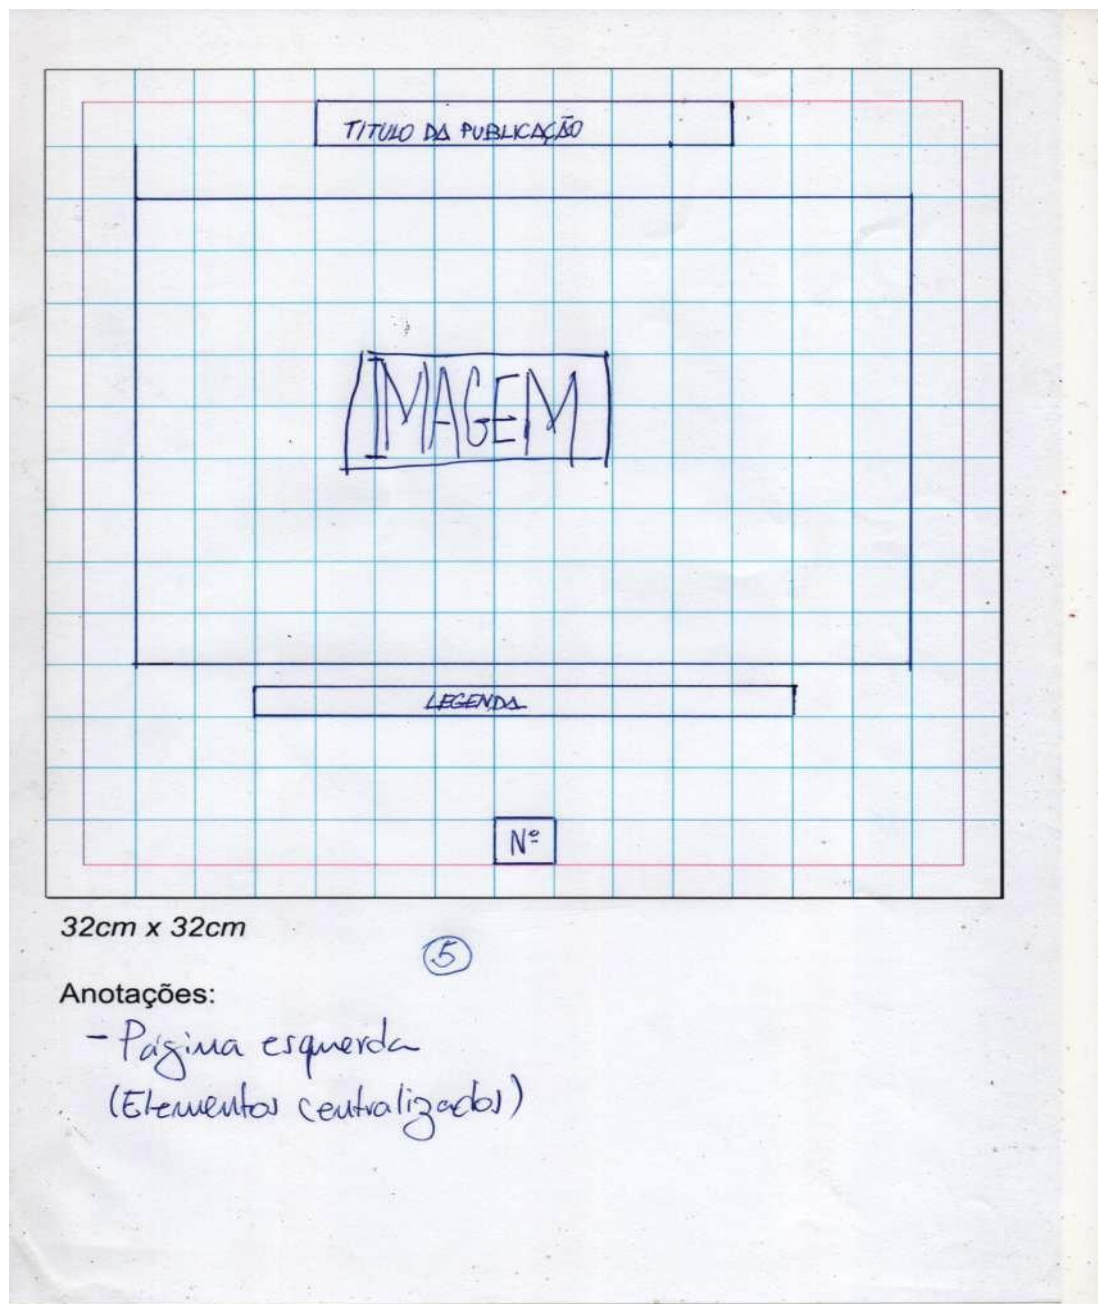 TITULO DA PUBLICAÇÃO
IMAGEM
LEGENDA
Nº
32cm x 32cm
5
Anotações:
- Página esquerda
(Elementos centralizados)